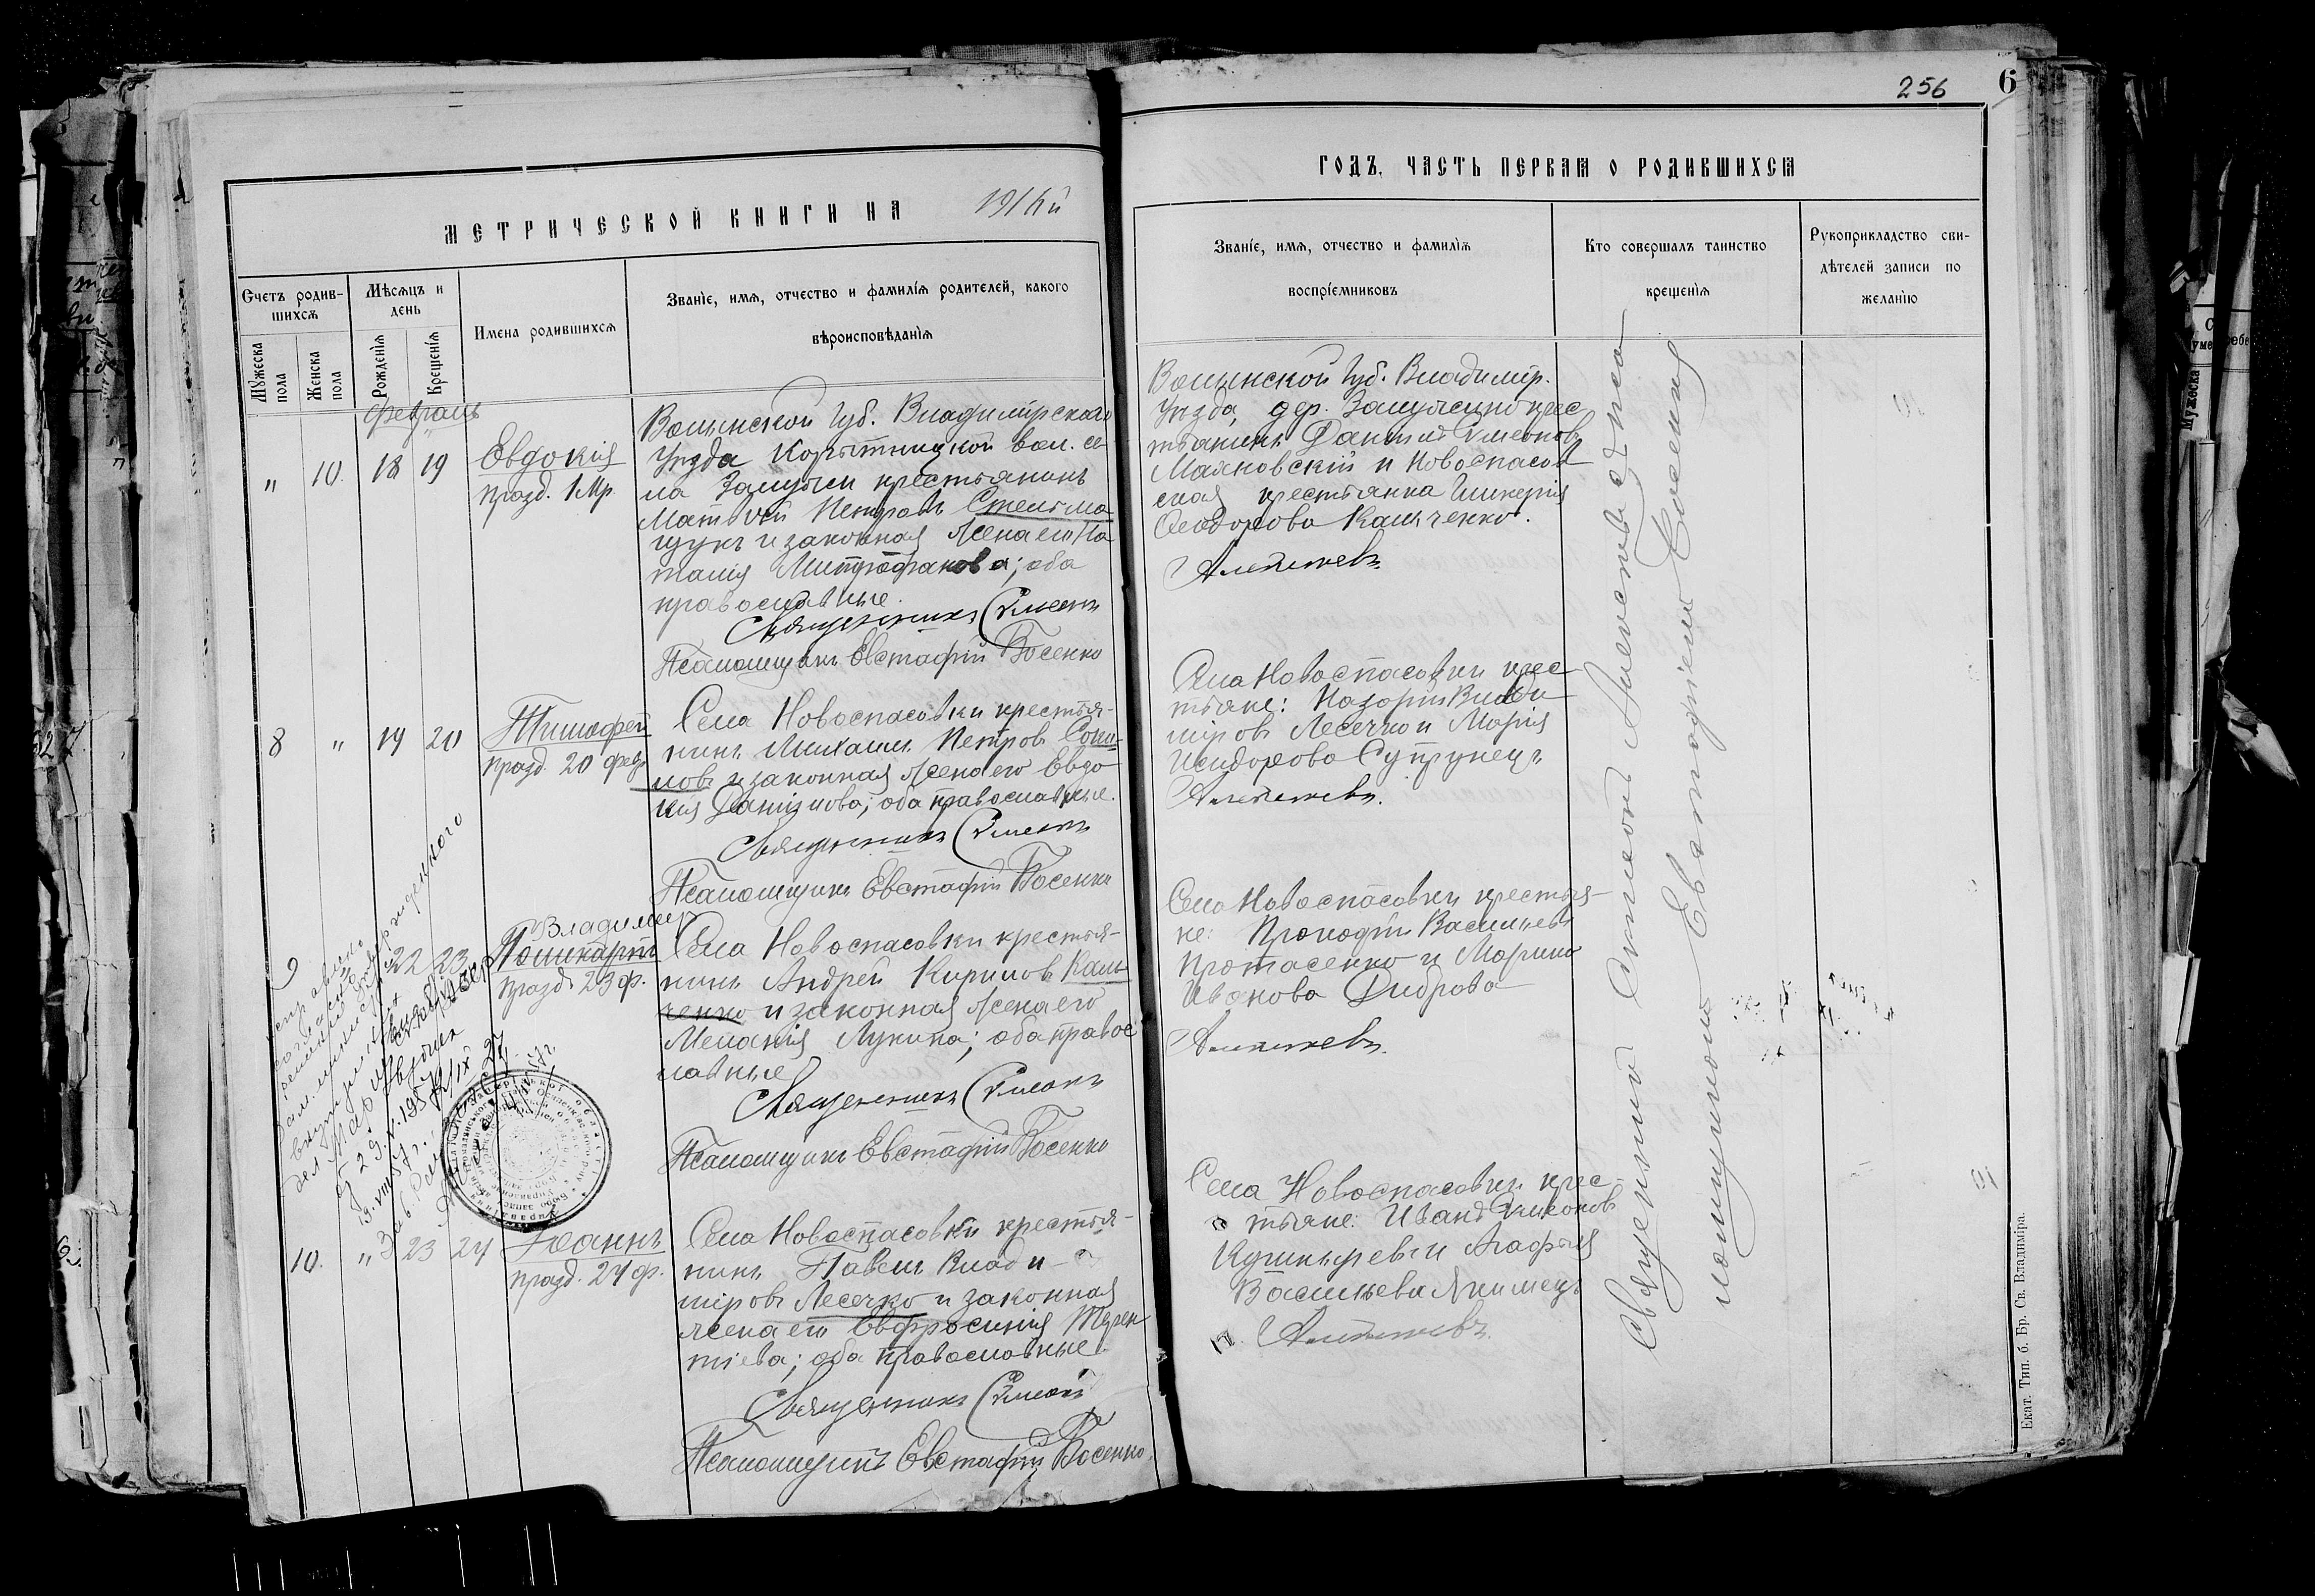 256
6
МЕТРИЧЕСКОЙ КНИГИ НА 1916й
ГОДЪ, ЧАСТЬ ПЕРВАЯ О РОДИВШИХСЯ
Счетъ родив-
шихся
Мужеска
пола
Женска
пола
Мѣсяцъ и
день
Рожденія
Крещенія
Имена родившихся
Званіе, имя, отчество и фамилія родителей, какого
вѣроисповѣданія
Званіе, имя, отчество и фамилія
воспріемниковъ
Кто совершалъ таинство
крещенія
Рукоприкладство сви-
дѣтелей записи по
желанію
Февраль
" 10. 18 19
Евдокія
празд. 1 Мр.
Волынской Губ. Владимірскаго
Уѣзда Корытницкой вол. се
ла крестьянинъ
Матѳей Петровъ Стельма
щукъ и законная жена его На
талія Митрофанова; оба
православные.
Священникъ Сѵмеонъ
Псаломщикъ Евстафій Косенко
Волынской Губ. Владимір.
Уѣзда, дер. крес
тьянинъ Даніилъ Сѵмеоновъ
Маяковскій и Новоспасов
ская крестьянка Гликерія
Ѳеодорова Кальченко.
8 " 19 20
Тимофей
празд. 20 февр
Села Новоспасовки крестья-
нинъ Михаилъ Петровъ Соко-
ловъ и законная жена его Евдо
кія Даніилова; оба православные.
Священникъ Сѵмеонъ
Псаломщикъ Евстафій Косенко
Села Новоспасовки крес
тьяне: Назарій Влади
міровъ Лесечко и Марія
Исидорова Супрунецъ
9 " 22 23
Владимир
Поликарпъ
празд. 23 ф.
Села Новоспасовки крестья-
нинъ Андрей Кириловъ Каль
ченко и законная жена его
Меланія Лукина; оба правос
лавные
Священникъ Сѵмеонъ
Псаломщикъ Евстафій Косенко
Села Новоспасовки крестья-
не: Прокофій Васильевъ
Протасенко и Марина
Иванова Диброва
исправлено
согласно
10. " 23 24
Іоаннъ
празд. 24 ф.
Села Новоспасовки крестья-
нинъ Павелъ Влади-
міровъ Лесечко и законная
жена его Евфросинія Терен
тіева; оба православные.
Священникъ Сѵмеонъ
Псаломщикъ Евстафій Косенко.
Села Новоспасовки крес-
тьяне: Иванъ
Кушныревъ и Агафья
Васильева Якимецъ
Священникъ Сѵмеонъ
псаломщикомъ Евстафіемъ Косенко
Екат. Тип. б. Бр. Св. Владиміра.